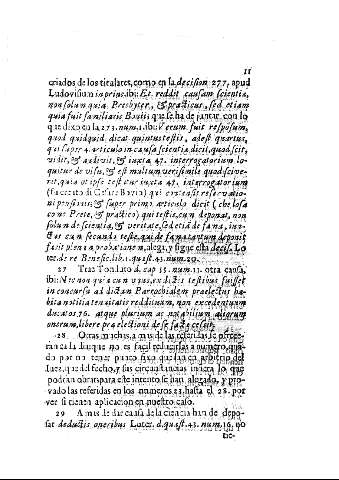 11
criados de los titulares, como en la decision 277. apud
Ludovisium in princ. ibi: Et reddit causam scientiæ,
non solum quia Presbyter, & practicus, sed etiam
quia fuit familiaris que se ha de juntar, con lo
que dixo en la 273. num. 1. ibi: Verum fuit responsum,
quod quidquid dicat quintus testis, adest quartus,
qui super 4. articulo in causa scientiæ dicit, quod scit,
vidit, & audivit, & iuxta 47. interrogatorium lo-
quitur de visu, & est multum verisimile quod scive-
rit, quia ut ipse testatur iuxta 47. interrogatorium
pensionis, & super primo articulo dicit
como Prete, & practico) qui testis, cum deponat, non
solum de scientia, & veritate, sed etiã de fama, iun-
ctus cum secundo teste, qui de fama tantum deponit
facit plenam probationem, alega, y sigue esta decis. Lo
ter. de re Benefic. lib. 1. quæst. 43. num. 20.
27 Trae Tonduto d. cap. 15. num. 11. otra causa,
ibi: Nec non quia cum unus, ex dictis testibus fuisset
in concursu ad dictam Parochialem præelectus ha-
bita notitia tenuitatis reddituum, non excedentium
ducatos 76. atque plurium ac notabilium aliorum
onerum, libere præelectioni de se factæ cessit.
28 Otras muchas, a mas de las referidas se ofrece-
rán cada dia, que no es facil reducirlas a numero, que-
do por no tener punto fixo quedan en arbitrio del
Juez, que del fecho, y sus circunstancias infiera lo que
podrán obrar; para este intento se han alegado, y pro-
vado las referidas en los numeros 23. hasta el 28. por
ver si tienen aplicacion en nuestro caso.
29 A mas de dar causa de la ciencia han de depo-
sar deductis oneribus Loter. d. quæst. 43. num. 16. no